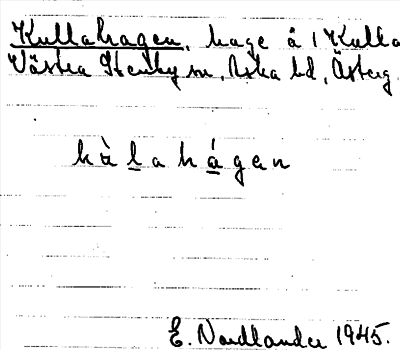 Kullahagen, hage å 1 Kulla
Västra Stenby sn, Aska hd, Österg.
kàlahágen
E. Nordlander 1945.